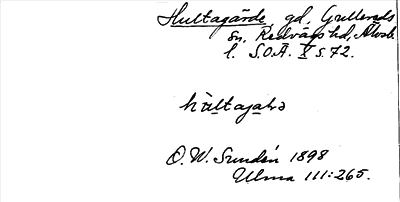 Hultagärde, gd, Grollereds
sn, Redvägs hd, Älvsb.
l. S.O.Ä. X s. 72.
hùltagalrə
O. W. Sundén 1898
Ulma 111:265.